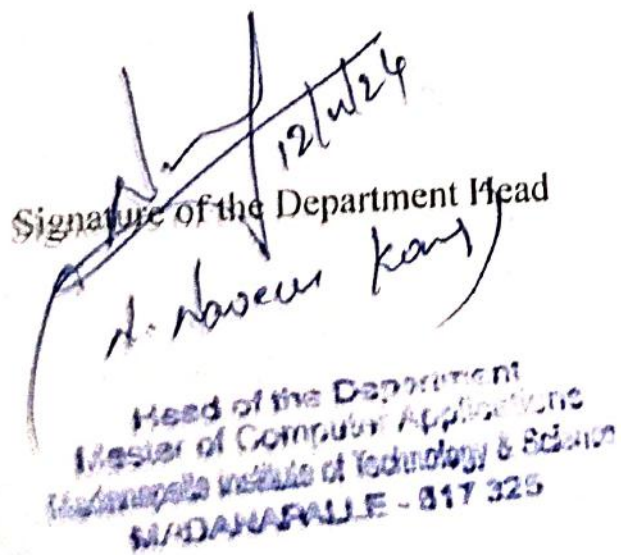 12/11/24
Signature of the Department Head
N. Naveen Kumar
Head of the Department
Master of Computer Applications
Madanapalle Institute of Technology & Science
MADANAPALLE - 517 325